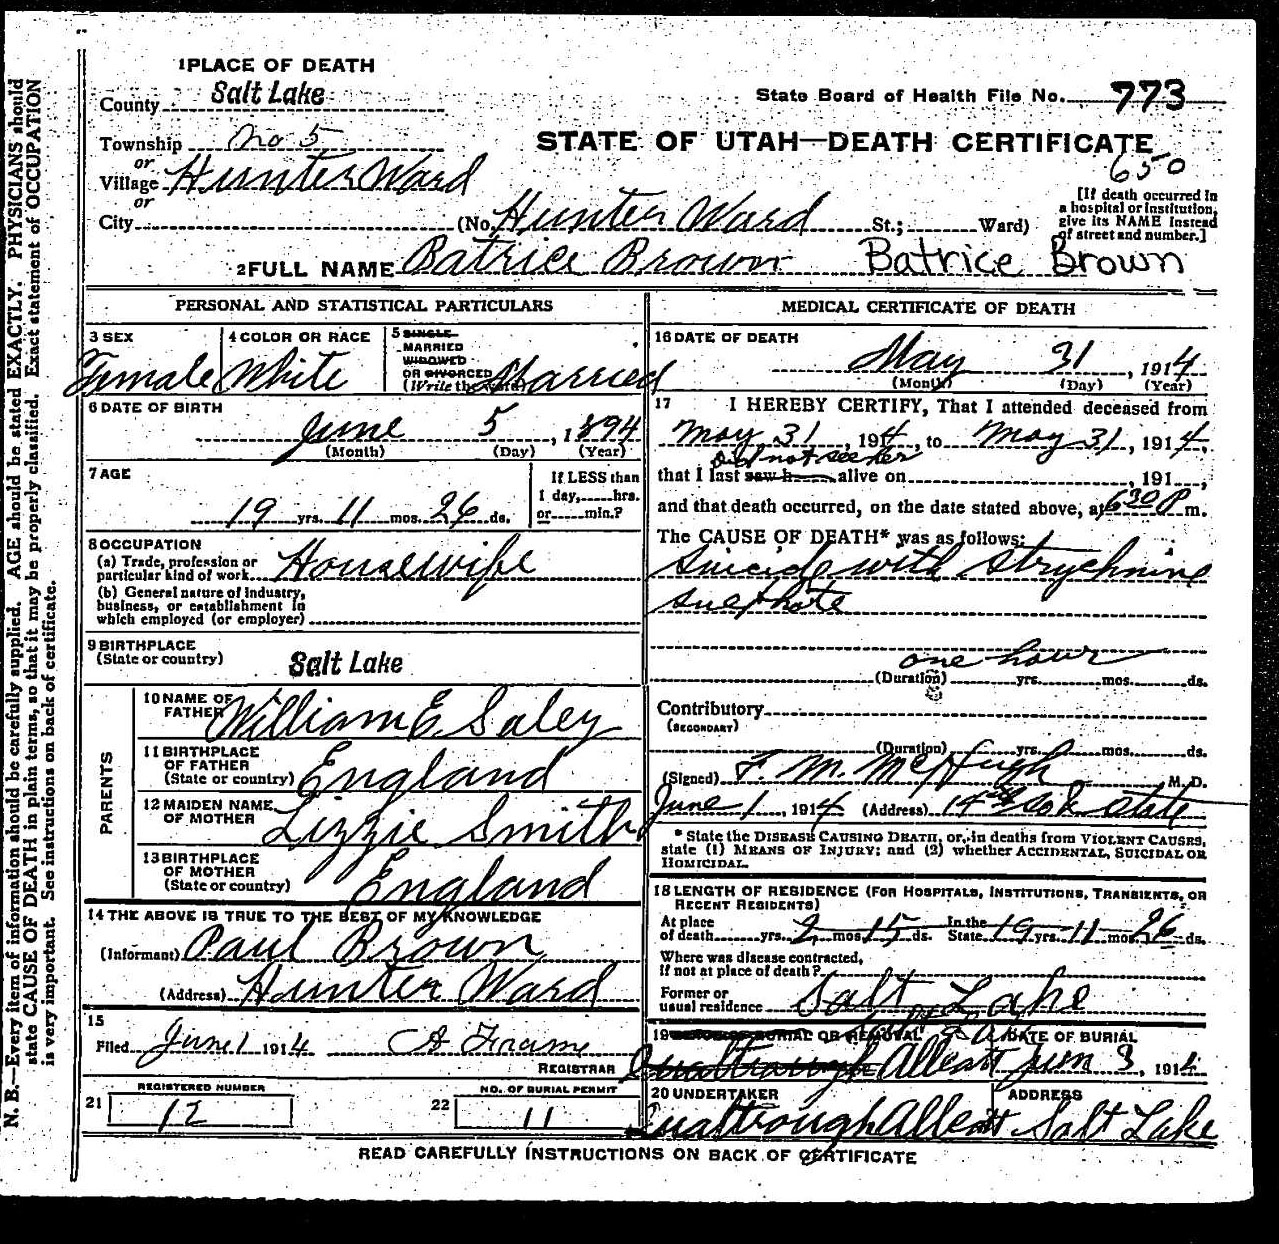 1 PLACE OF DEATH
County Salt Lake
State Board of Health File No. 773
Township No 5
STATE OF UTAH—DEATH CERTIFICATE
or
650
Village Hunter Ward
or
[If death occurred in
a hospital or institution,
give its NAME instead
of street and number.]
City (No. Hunter Ward St.; Ward)
2 FULL NAME Batrice Brown Batrice Brown
PERSONAL AND STATISTICAL PARTICULARS
3 SEX
Female
4 COLOR OR RACE
White
5 SINGLE
MARRIED
WIDOWED
OR DIVORCED
(Write the word) Married
6 DATE OF BIRTH
June 5, 1894
(Month) (Day) (Year)
7 AGE
19 yrs. 11 mos. 26 ds.
If LESS than
1 day,......hrs.
or......min.?
8 OCCUPATION
(a) Trade, profession or
particular kind of work Housewife
(b) General nature of industry,
business, or establishment in
which employed (or employer)
9 BIRTHPLACE
(State or country) Salt Lake
PARENTS
10 NAME OF
FATHER William E. Saley
11 BIRTHPLACE
OF FATHER
(State or country) England
12 MAIDEN NAME
OF MOTHER Lizzie Smith
13 BIRTHPLACE
OF MOTHER
(State or country) England
14 THE ABOVE IS TRUE TO THE BEST OF MY KNOWLEDGE
(Informant) Paul Brown
(Address) Hunter Ward
15
Filed June 1 1914
REGISTRAR
REGISTERED NUMBER
21 12
NO. OF BURIAL PERMIT
22 11
MEDICAL CERTIFICATE OF DEATH
16 DATE OF DEATH
May 31, 1914
(Month) (Day) (Year)
17 I HEREBY CERTIFY, That I attended deceased from
May 31, 1914, to May 31, 1914,
did not see her
that I last saw h alive on, 191,
and that death occurred, on the date stated above, at 6 30 P m.
The CAUSE OF DEATH* was as follows:
Suicide with Strychnine
sulphate
one hour
(Duration) yrs. mos. ds.
Contributory
(SECONDARY)
(Duration) yrs. mos. ds.
(Signed) F. M. McHugh M. D.
June 1, 1914 (Address) State
* State the DISEASE CAUSING DEATH, or, in deaths from VIOLENT CAUSES,
state (1) MEANS OF INJURY; and (2) whether ACCIDENTAL, SUICIDAL OR
HOMICIDAL.
18 LENGTH OF RESIDENCE (FOR HOSPITALS, INSTITUTIONS, TRANSIENTS, OR
RECENT RESIDENTS)
At place
of death yrs. 2 mos. 15 ds. In the State 19 yrs. 11 mos. 26 ds.
Where was disease contracted,
if not at place of death?
Former or
usual residence Salt Lake
19 PLACE OF BURIAL OR REMOVAL Salt Lake DATE OF BURIAL
Jun 3, 1914
20 UNDERTAKER
ADDRESS
Salt Lake
READ CAREFULLY INSTRUCTIONS ON BACK OF CERTIFICATE
N. B.—Every item of information should be carefully supplied. AGE should be stated EXACTLY. PHYSICIANS should
state CAUSE OF DEATH in plain terms, so that it may be properly classified. Exact statement of OCCUPATION
is very important. See instructions on back of certificate.